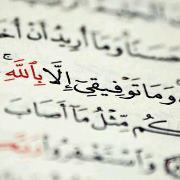 حَسَنًا وَمَا أُرِيدُ أَنْ أُخَ
وَمَا تَوْفِيقِيٓ إِلَّا بِٱللَّهِ ۚ
كُم مِّثْلُ مَآ أَصَابَ
وَٱسْتَغْفِرُوا۟